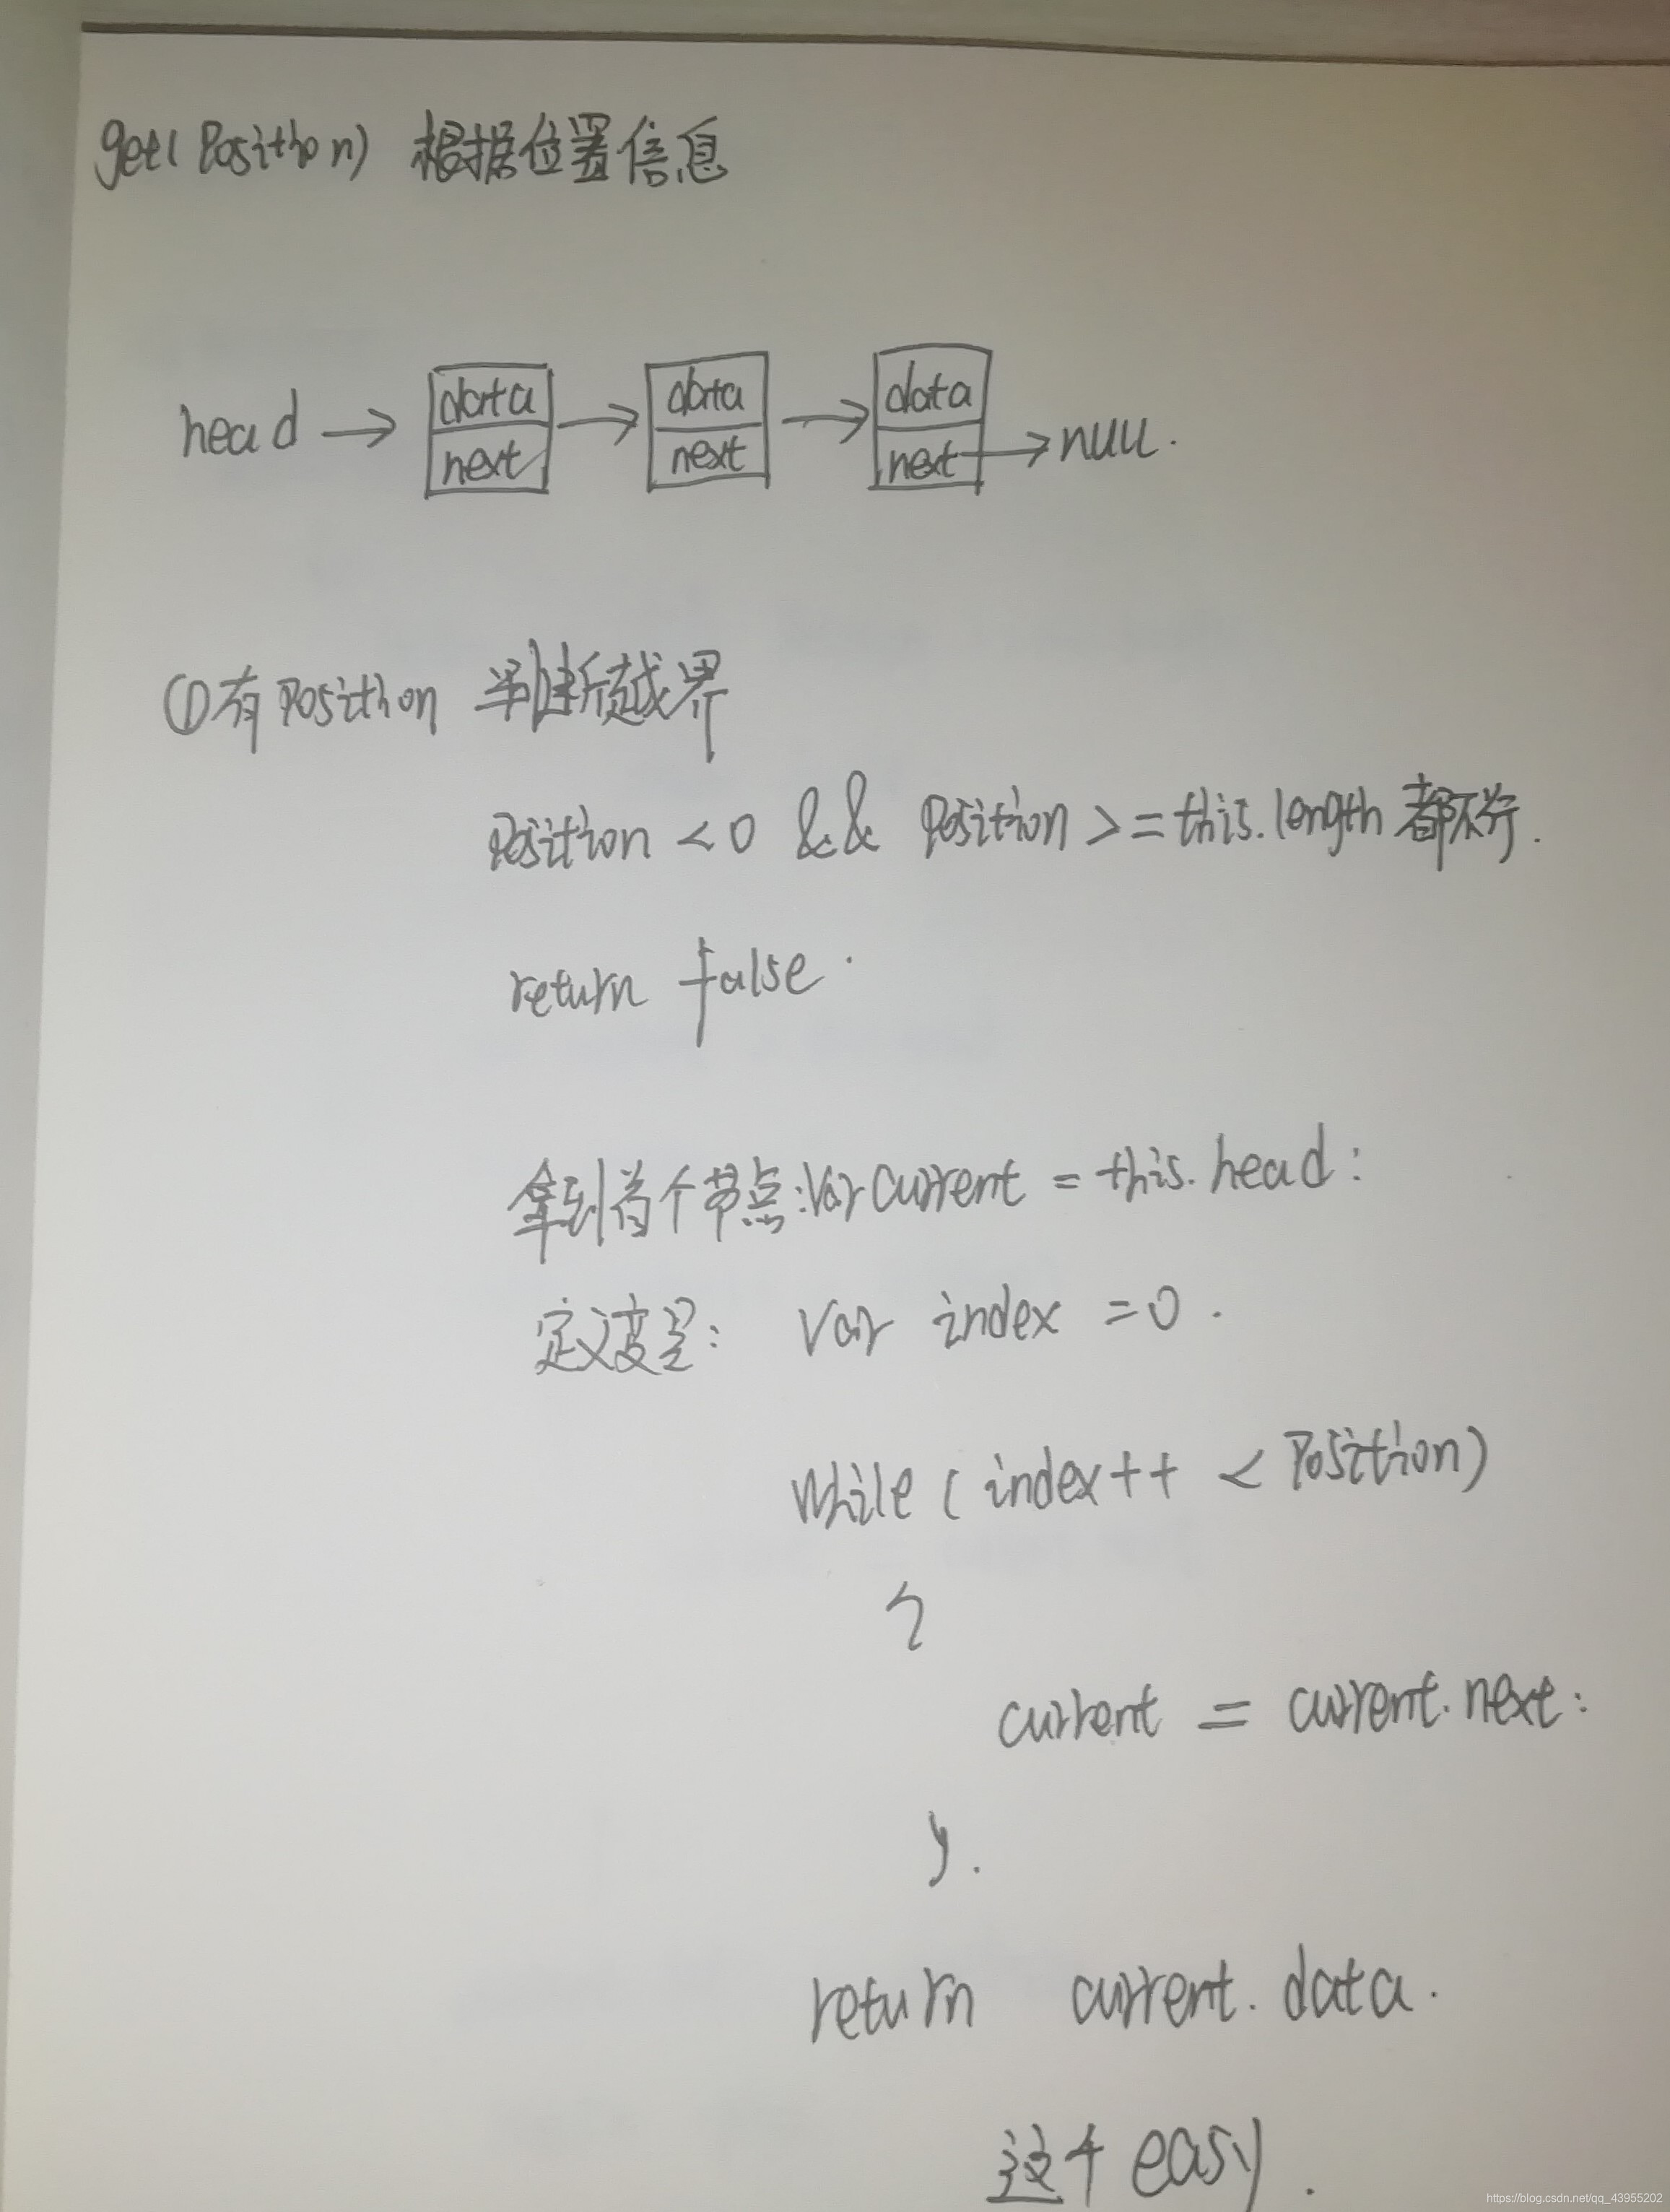 get(Position) 根据位置信息
head → data → data → data
next next next → null.
①有Position 判断越界
Position < 0 && Position >= this.length 都不行.
return false.
拿到首个节点:Var current = this.head:
定义变量: Var index = 0.
while ( index++ < Position)
{
current = current.next:
}.
return current. data.
这个 easy.
https://blog.csdn.net/qq_43955202